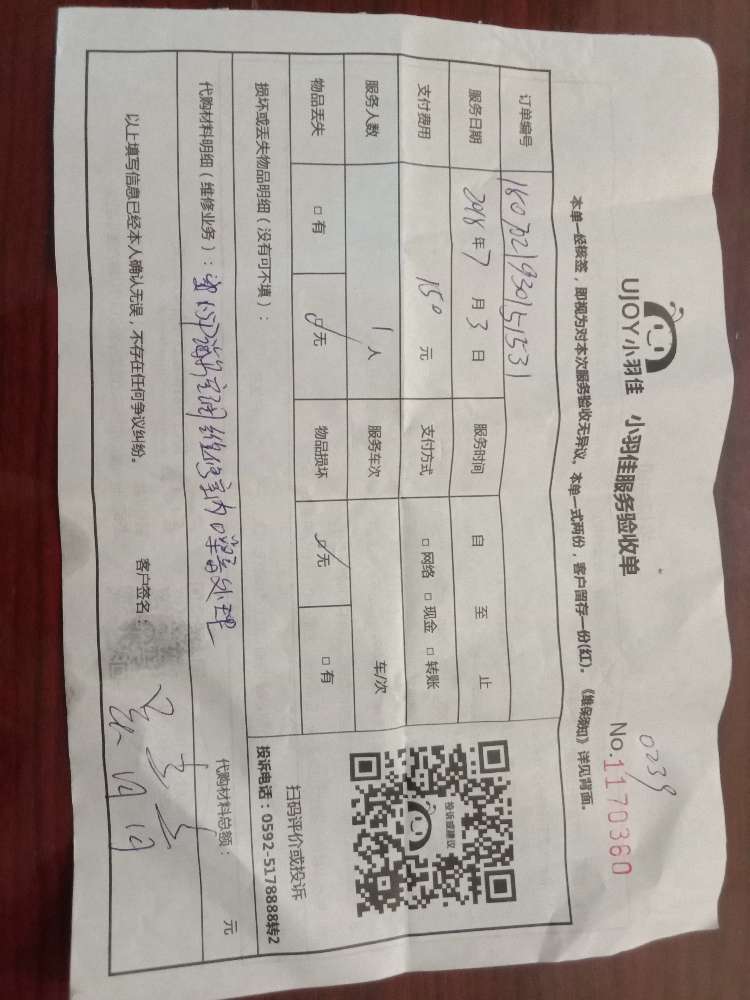 UJOY小羽佳 小羽佳服务验收单
0239
No.1170360
本单一经核签，即视为对本次服务验收无异议。本单一式两份，客户留存一份(红)。《维保须知》详见背面。
订单编号 1807021930151531
服务日期 2018年7月3日 服务时间 自 至 止
支付费用 150元 支付方式 □网络 □现金 □转账
服务人数 1人 服务车次 车/次
物品丢失 □有 ☑无 物品损坏 ☑无 □有
投诉或建议
扫码评价或投诉
投诉电话：0592-5178888转2
损坏或丢失物品明细（没有可不填）：
代购材料明细（维修业务）： 空调维修室内噪音处理 代购材料总额： 元
以上填写信息已经本人确认无误，不存在任何争议纠纷。 客户签名：